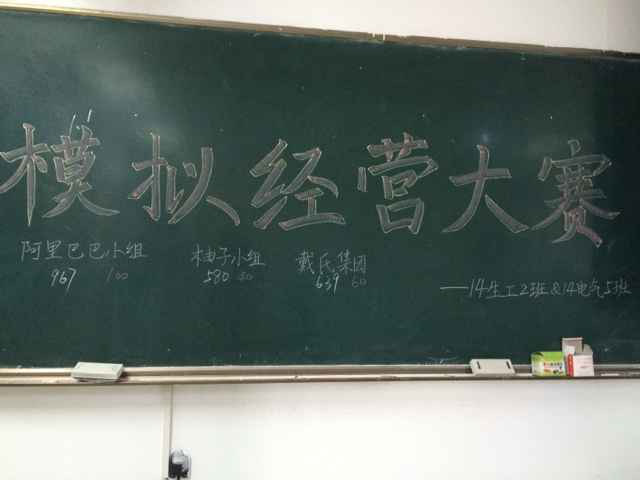 模拟经营大赛
阿里巴巴小组 柚子小组 戴氏集团
967 100 580 40 639 60
——14生工2班&14电气5班